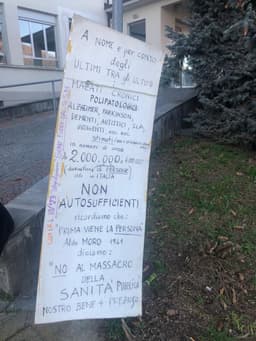 A NOME e per CONTO
degli
ULTIMI TRA gli ULTIMI
MALATI CRONICI
POLIPATOLOGICI
ALZHEIMER, PARKINSON,
DEMENTI, AUTISTICI, SLA,
stimati
in numero di circa
2.000.000,
di PERSONE
in ITALIA
NON
AUTOSUFFICIENTI
ricordiamo che:
"PRIMA VIENE LA PERSONA"
Aldo MORO
diciamo:
"NO AL MASSACRO
DELLA
SANITÀ PUBBLICA
NOSTRO BENE + PREZIOSO